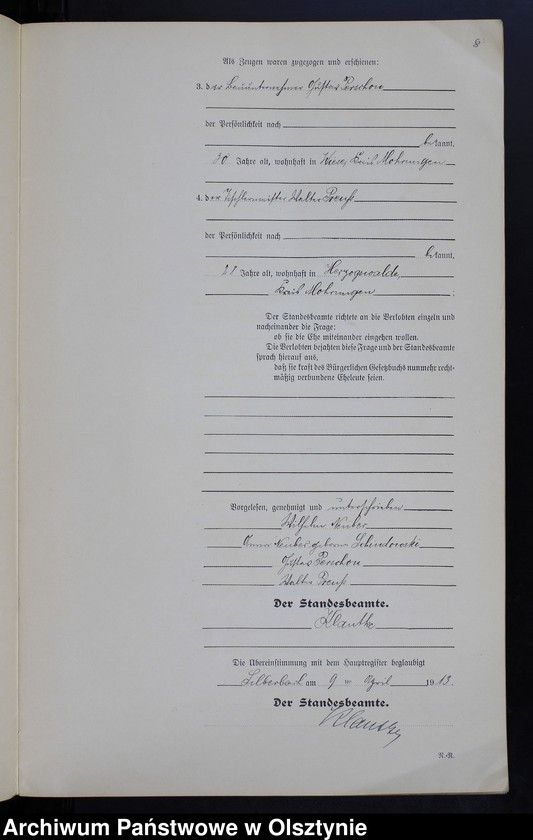 8
Als Zeugen waren zugezogen und erschienen:
3. der Bauunternehmer Gustav Perschon
der Persönlichkeit nach
bekannt,
30 Jahre alt, wohnhaft in Kreis Mohrungen
4. der Tischlermeister Walter Preuß
der Persönlichkeit nach
bekannt,
28 Jahre alt, wohnhaft in Herzogswalde,
Kreis Mohrungen :
Der Standesbeamte richtete an die Verlobten einzeln und
nacheinander die Frage:
ob sie die Ehe miteinander eingehen wollen.
Die Verlobten bejahten diese Frage und der Standesbeamte
sprach hierauf aus,
daß sie kraft des Bürgerlichen Gesetzbuchs nunmehr recht-
mäßig verbundene Eheleute seien.
Vorgelesen, genehmigt und unterschrieben
Wilhelm Neuber
Anna Neuber geborene
Gustav Perschon
Walter Preuß
Der Standesbeamte.
Klautke
Die Übereinstimmung mit dem Hauptregister beglaubigt
Silberbach am 9 ten April 1913.
Der Standesbeamte.
Klautke
R.-R.
Archiwum Państwowe w Olsztynie